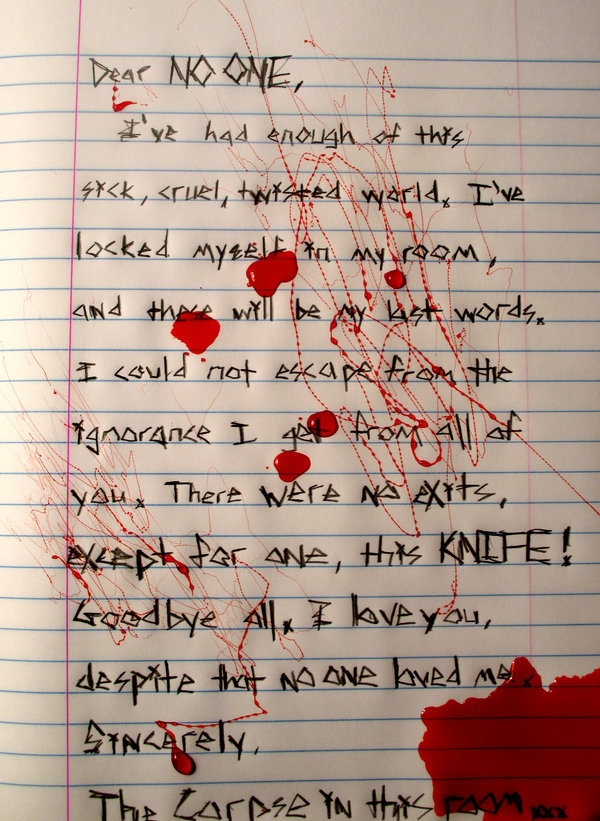 Dear NO ONE,
I've had enough of this
sick, cruel, twisted world. I've
locked myself in my room,
and these will be my last words.
I could not escape from the
ignorance I get from all of
you. There were no exits,
except for one, this KNIFE!
Goodbye all. I love you,
despite that no one loved me.
Sincerely,
The Corpse in this room...xxx